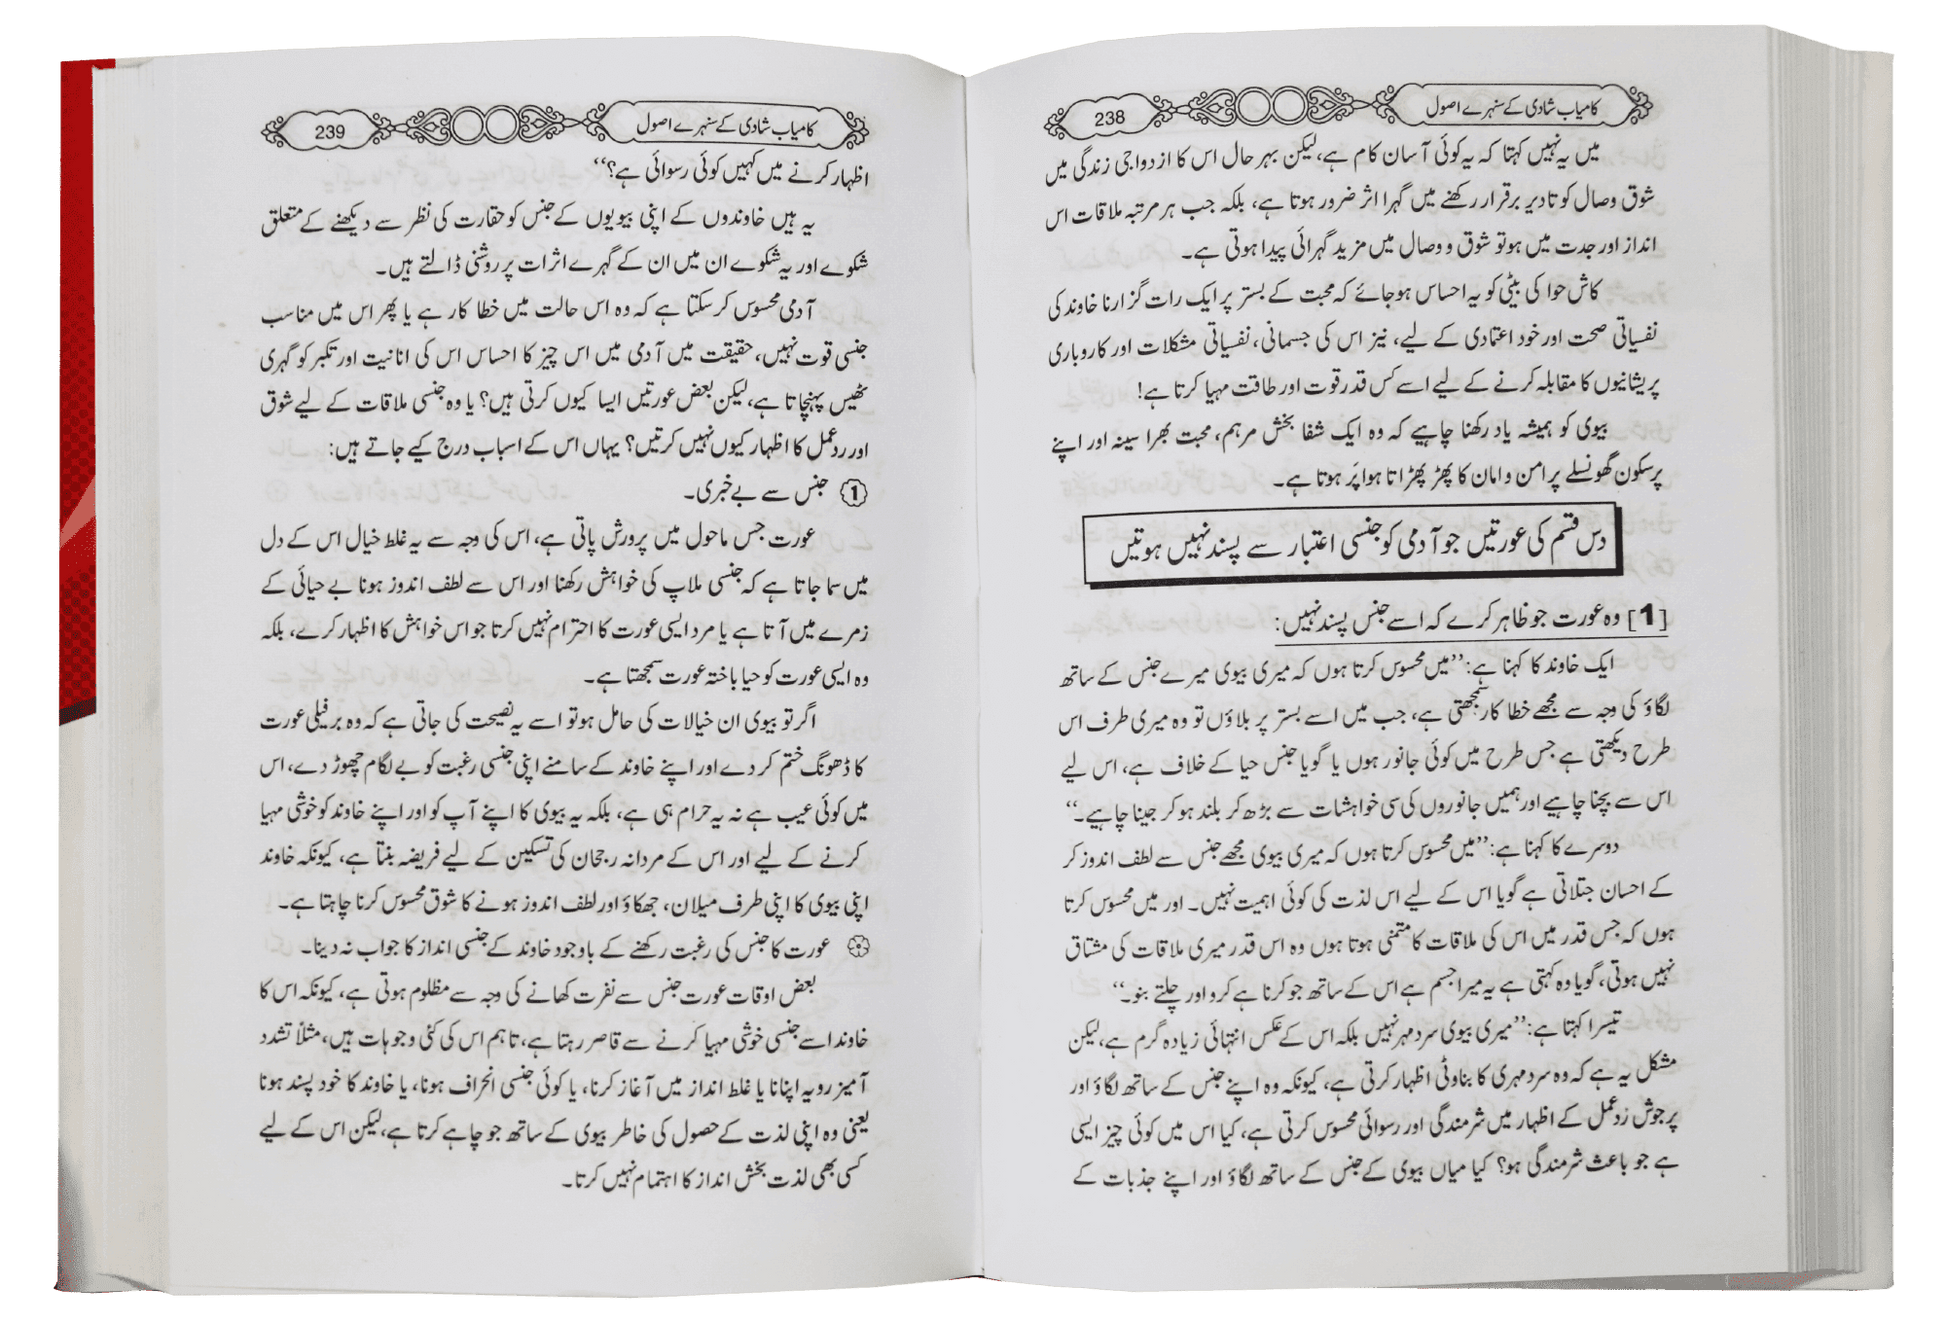 کامیاب شادی کے سنہرے اصول
238
میں یہ نہیں کہتا کہ یہ کوئی آسان کام ہے، لیکن بہر حال اس کا ازدواجی زندگی میں
شوق وصال کو تادیر برقرار رکھنے میں گہرا اثر ضرور ہوتا ہے، بلکہ جب ہر مرتبہ ملاقات اس
انداز اور جدت میں ہو تو شوق و وصال میں مزید گہرائی پیدا ہوتی ہے۔
کاش حوا کی بیٹی کو یہ احساس ہو جائے کہ محبت کے بستر پر ایک رات گزارنا خاوند کی
نفسیاتی صحت اور خود اعتمادی کے لیے، نیز اس کی جسمانی، نفسیاتی مشکلات اور کاروباری
پریشانیوں کا مقابلہ کرنے کے لیے اسے کس قدر قوت اور طاقت مہیا کرتا ہے!
بیوی کو ہمیشہ یاد رکھنا چاہیے کہ وہ ایک شفا بخش مرہم، محبت بھرا سینہ اور اپنے
پرسکون گھونسلے پر امن و امان کا پھڑ پھڑاتا ہوا پَر ہوتا ہے۔
دس قسم کی عورتیں جو آدمی کو جنسی اعتبار سے پسند نہیں ہوتیں
[1] وہ عورت جو ظاہر کرے کہ اسے جنس پسند نہیں:
ایک خاوند کا کہنا ہے: ’’میں محسوس کرتا ہوں کہ میری بیوی میرے جنس کے ساتھ
لگاؤ کی وجہ سے مجھے خطا کار سمجھتی ہے، جب میں اسے بستر پر بلاؤں تو وہ میری طرف اس
طرح دیکھتی ہے جس طرح میں کوئی جانور ہوں یا گویا جنس حیا کے خلاف ہے، اس لیے
اس سے بچنا چاہیے اور ہمیں جانوروں کی سی خواہشات سے بڑھ کر بلند ہو کر جینا چاہیے۔‘‘
دوسرے کا کہنا ہے: ’’میں محسوس کرتا ہوں کہ میری بیوی مجھے جنس سے لطف اندوز کر
کے احسان جتلاتی ہے گویا اس کے لیے اس لذت کی کوئی اہمیت نہیں۔ اور میں محسوس کرتا
ہوں کہ جس قدر میں اس کی ملاقات کا متمنی ہوتا ہوں وہ اس قدر میری ملاقات کی مشتاق
نہیں ہوتی، گویا وہ کہتی ہے یہ میرا جسم ہے اس کے ساتھ جو کرنا ہے کرو اور چلتے بنو۔‘‘
تیسرا کہتا ہے: ’’میری بیوی سرد مہر نہیں بلکہ اس کے عکس انتہائی زیادہ گرم ہے، لیکن
مشکل یہ ہے کہ وہ سرد مہری کا بناوٹی اظہار کرتی ہے، کیونکہ وہ اپنے جنس کے ساتھ لگاؤ اور
پر جوش ردعمل کے اظہار میں شرمندگی اور رسوائی محسوس کرتی ہے، کیا اس میں کوئی چیز ایسی
ہے جو باعث شرمندگی ہو؟ کیا میاں بیوی کے جنس کے ساتھ لگاؤ اور اپنے جذبات کے
کامیاب شادی کے سنہرے اصول
239
اظہار کرنے میں کہیں کوئی رسوائی ہے؟‘‘
یہ ہیں خاوندوں کے اپنی بیویوں کے جنس کو حقارت کی نظر سے دیکھنے کے متعلق
شکوے اور یہ شکوے ان میں ان کے گہرے اثرات پر روشنی ڈالتے ہیں۔
آدمی محسوس کر سکتا ہے کہ وہ اس حالت میں خطا کار ہے یا پھر اس میں مناسب
جنسی قوت نہیں، حقیقت میں آدمی میں اس چیز کا احساس اس کی انانیت اور تکبر کو گہری
ٹھیس پہنچاتا ہے، لیکن بعض عورتیں ایسا کیوں کرتی ہیں؟ یا وہ جنسی ملاقات کے لیے شوق
اور ردعمل کا اظہار کیوں نہیں کرتیں؟ یہاں اس کے اسباب درج کیے جاتے ہیں:
① جنس سے بے خبری۔
عورت جس ماحول میں پرورش پاتی ہے، اس کی وجہ سے یہ غلط خیال اس کے دل
میں سما جاتا ہے کہ جنسی ملاپ کی خواہش رکھنا اور اس سے لطف اندوز ہونا بے حیائی کے
زمرے میں آتا ہے یا مرد ایسی عورت کا احترام نہیں کرتا جو اس خواہش کا اظہار کرے، بلکہ
وہ ایسی عورت کو حیا باختہ عورت سمجھتا ہے۔
اگر تو بیوی ان خیالات کی حامل ہو تو اسے یہ نصیحت کی جاتی ہے کہ وہ برفیلی عورت
کا ڈھونگ ختم کر دے اور اپنے خاوند کے سامنے اپنی جنسی رغبت کو بے لگام چھوڑ دے، اس
میں کوئی عیب ہے نہ یہ حرام ہی ہے، بلکہ یہ بیوی کا اپنے آپ کو اور اپنے خاوند کو خوشی مہیا
کرنے کے لیے اور اس کے مردانہ رجحان کی تسکین کے لیے فریضہ بنتا ہے، کیونکہ خاوند
اپنی بیوی کا اپنی طرف میلان، جھکاؤ اور لطف اندوز ہونے کا شوق محسوس کرنا چاہتا ہے۔
عورت کا جنس کی رغبت رکھنے کے باوجود خاوند کے جنسی انداز کا جواب نہ دینا۔
بعض اوقات عورت جنس سے نفرت کھانے کی وجہ سے مظلوم ہوتی ہے، کیونکہ اس کا
خاوند اسے جنسی خوشی مہیا کرنے سے قاصر رہتا ہے، تاہم اس کی کئی وجوہات ہیں، مثلاً تشدد
آمیز رویہ اپنانا یا غلط انداز میں آغاز کرنا، یا کوئی جنسی انحراف ہونا، یا خاوند کا خود پسند ہونا
یعنی وہ اپنی لذت کے حصول کی خاطر بیوی کے ساتھ جو چاہے کرتا ہے، لیکن اس کے لیے
کسی بھی لذت بخش انداز کا اہتمام نہیں کرتا۔